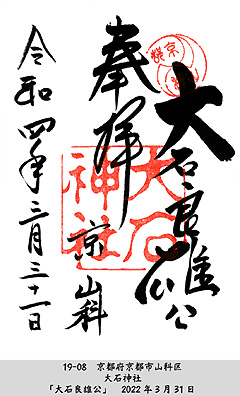 奉拝
大石良雄公
大石神社
京山科
令和四年三月三十一日
19-08 京都府京都市山科区
大石神社
「大石良雄公」 2022年3月31日